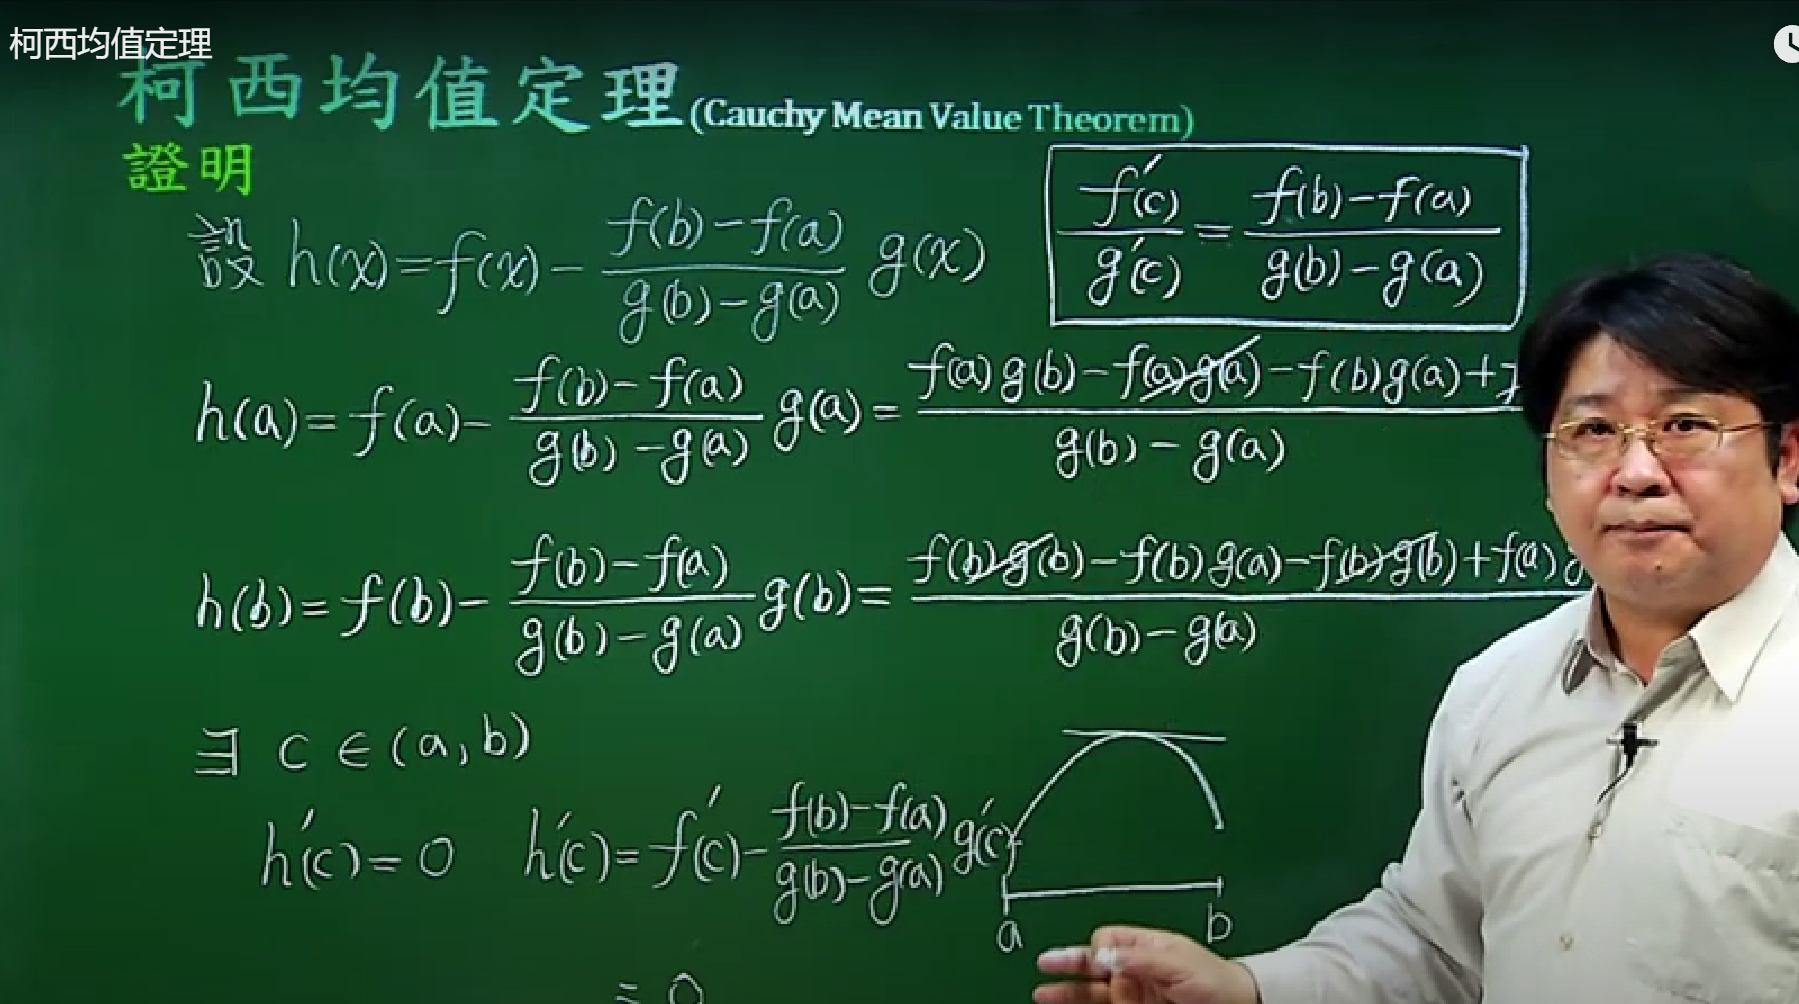 柯西均值定理
柯西均值定理(Cauchy Mean Value Theorem)
證明
f'(c)/g'(c) = (f(b)-f(a))/(g(b)-g(a))
設 h(x)=f(x)- (f(b)-f(a))/(g(b)-g(a)) g(x)
h(a)=f(a)- (f(b)-f(a))/(g(b)-g(a)) g(a)= (f(a)g(b)-f(a)g(a)-f(b)g(a)+)/(g(b)-g(a))
h(b)=f(b)- (f(b)-f(a))/(g(b)-g(a)) g(b)= (f(b)g(b)-f(b)g(a)-f(b)g(b)+f(a))/(g(b)-g(a))
∃ c ∈(a,b)
h'(c)=0 h'(c)=f'(c)- (f(b)-f(a))/(g(b)-g(a)) g'(c)
a b
= 0